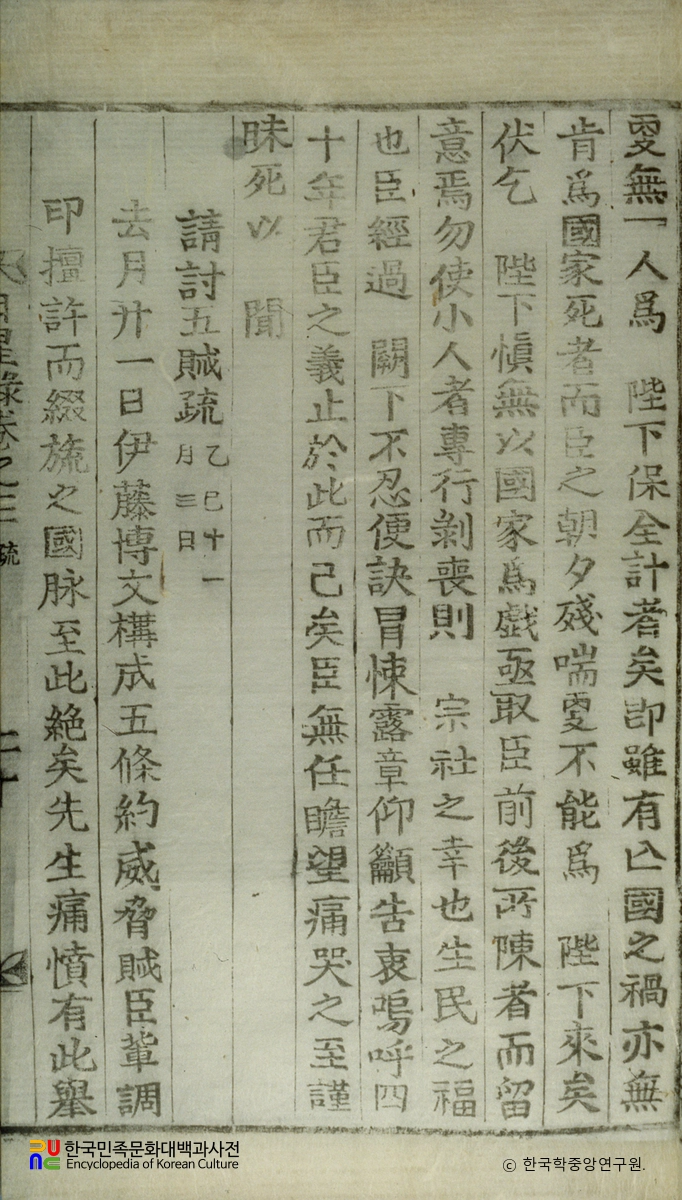 更無一人爲 陛下保全計者矣卽雖有亡國之禍亦無
肯爲國家死者而臣之朝夕殘喘更不能爲 陛下來矣
伏乞 陛下愼無以國家爲戲亟取臣前後所陳者而留
意焉勿使小人者專行剝喪則 宗社之幸也生民之福
也臣經過 闕下不忍便訣冒悚露章仰籲告衷嗚呼四
十年君臣之義止於此而已矣臣無任瞻望痛哭之至謹
昧死以 聞
請討五賊疏 乙巳十一
月三日
去月廿一日伊藤博文構成五條約威脅賊臣輩調
印擅許而綴旒之國脉至此絶矣先生痛憤有此擧
卷之三 疏
二十
한국민족문화대백과사전
Encyclopedia of Korean Culture
© 한국학중앙연구원.